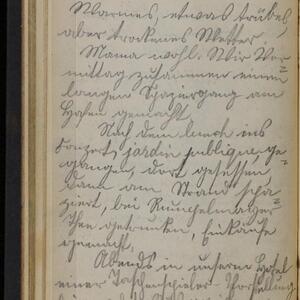 Warmes, etwas trübes,
aber trockenes Wetter
Mama wohl. Wir Vor-
mittag zusammen einen
langen Spaziergang am
Hafen gemacht
Nach dem lunch ins
Konzert jardin publique, ge-
gangen, dort gesessen,
dann am Strand spa-
ziert, bei Rumpelmayer
Thee getrunken, Einkäufe
gemacht.
Abends in unserm Hotel
einer Taschenspieler-Vorstellung